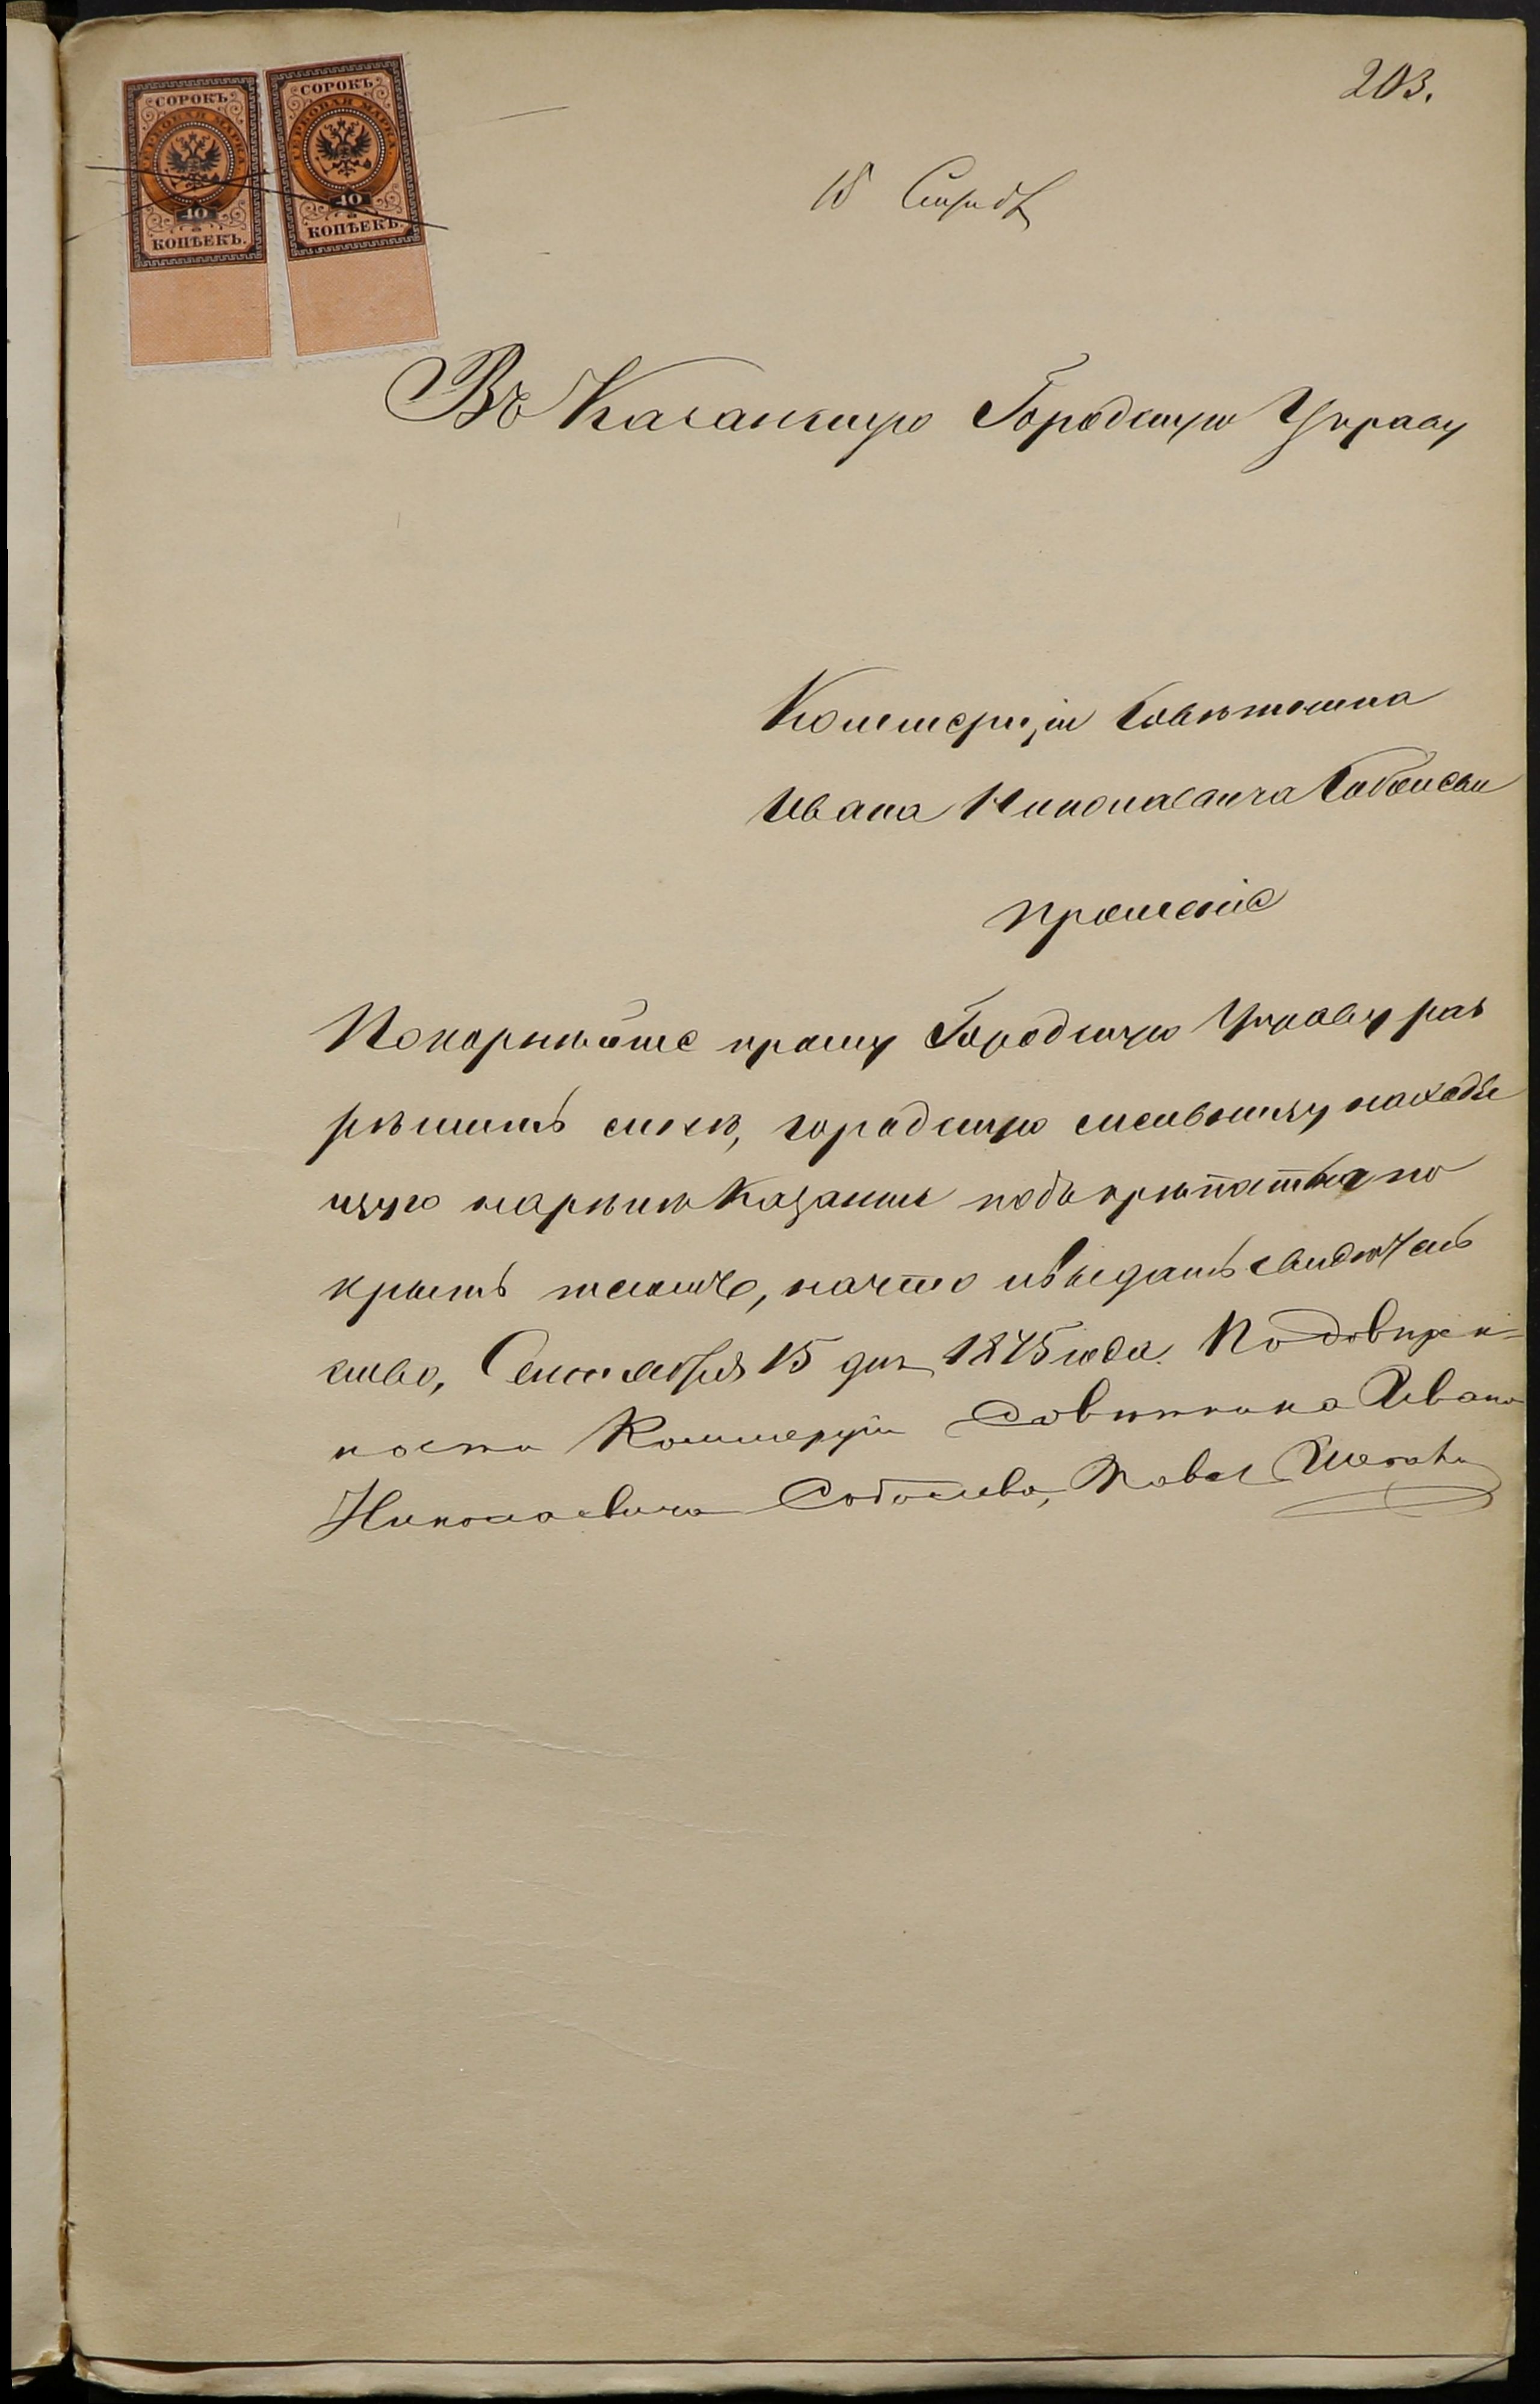 203.
СОРОКЪ
ГЕРБОВАЯ МАРКА
40
КОПѢЕКЪ.
СОРОКЪ
ГЕРБОВАЯ МАРКА
40
КОПѢЕКЪ.
18 Сентяб
Въ Казанскую Городскую Управу
Коммерціи Совѣтника
Ивана Николаевича Соболева
прошеніе
Покорнѣйше прошу Городскую Управу раз
рѣшить мнѣ, городскую мельницу находя
щуюся нарѣкѣ Казанкѣ по
крыть тесомъ, начто и выдать свидѣтель
ство, Сентября 15 дня 1875 года. По довѣрен-
ности Коммерціи Совѣтника Ивана
Николаевича Соболева, Павел